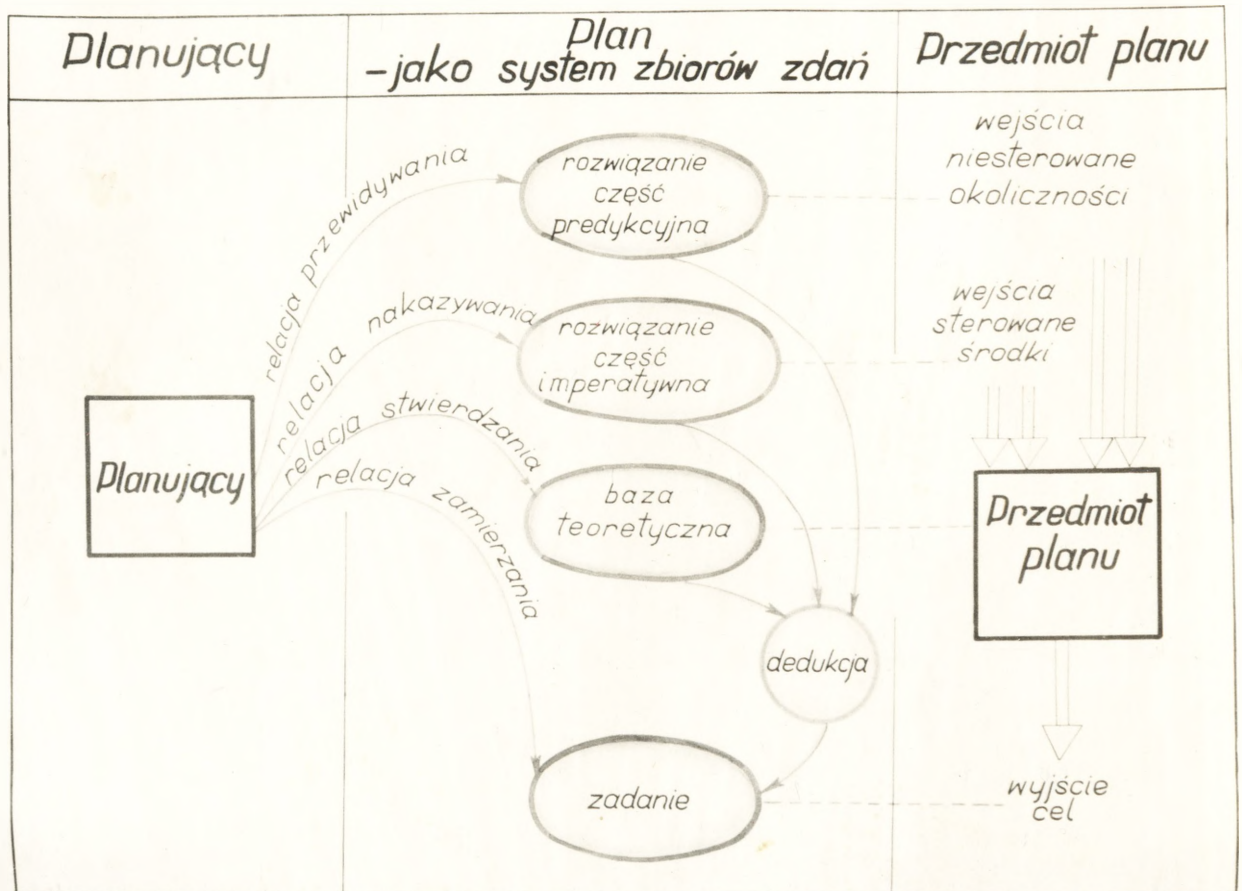 Planujący
Plan
-jako system zbiorów zdań
Przedmiot planu
relacja przewidywania
relacja nakazywania
relacja stwierdzania
relacja zamierzania
Planujący
rozwiązanie
część
predykcyjna
rozwiązanie
część
imperatywna
baza
teoretyczna
dedukcja
zadanie
wejścia
niesterowane
okoliczności
wejścia
sterowane
środki
Przedmiot
planu
wyjście
cel